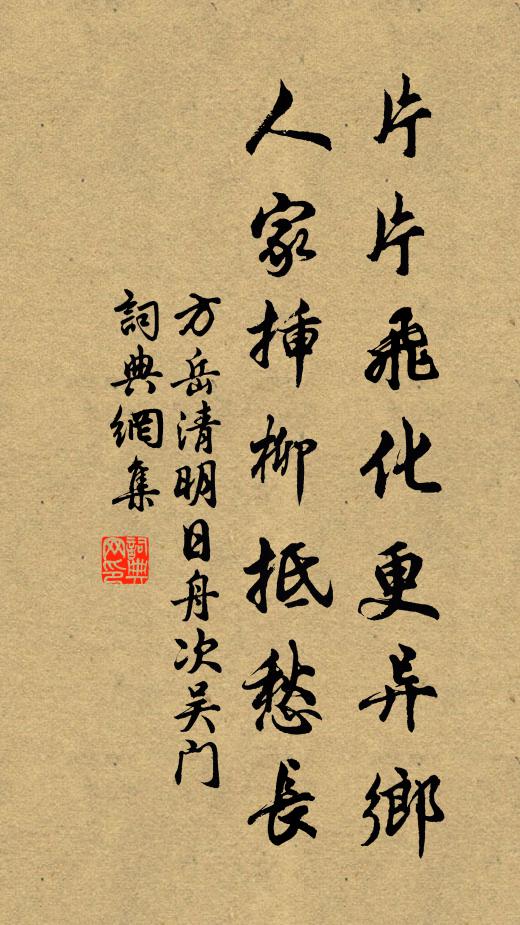 片片飛化更异鄉
人家挿柳抵愁長
方岳清明日舟次吴门
詞典網集
詞典网印